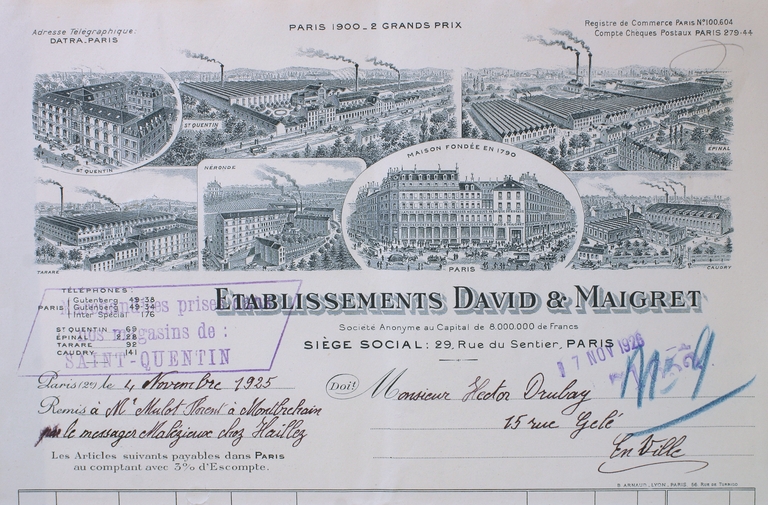 Adresse Télégraphique:
DATRA_PARIS
PARIS 1900_2 GRANDS PRIX
Registre de Commerce PARIS N°100,604
Compte Chèques Postaux PARIS 279-44
ST QUENTIN
ST QUENTIN
ÉPINAL
TARARE
NÉRONDE
MAISON FONDÉE EN 1790
PARIS
CAUDRY
TÉLÉPHONES:
PARIS
Gutenberg 49-38
Gutenberg 49-34
Inter Spécial 176
ST QUENTIN 69
ÉPINAL 2.28
TARARE 92
CAUDRY 141
prises
nos magasins de :
SAINT-QUENTIN
ETABLISSEMENTS DAVID & MAIGRET
Société Anonyme au Capital de 8.000.000 de Francs
SIÈGE SOCIAL: 29, Rue du Sentier, PARIS
Paris (2e) le 4 Novembre 1925
Doit
Monsieur Hector Drubay
15 rue Gelé
En Ville
Remis à Mr Mulot florent à Montbrehain
le messager Malezieux chez Haillez
Les Articles suivants payables dans PARIS
au comptant avec 3% d'Escompte.
17 NOV 1925
B. ARNAUD_LYON, PARIS, 56, RUE DE TURBIGO